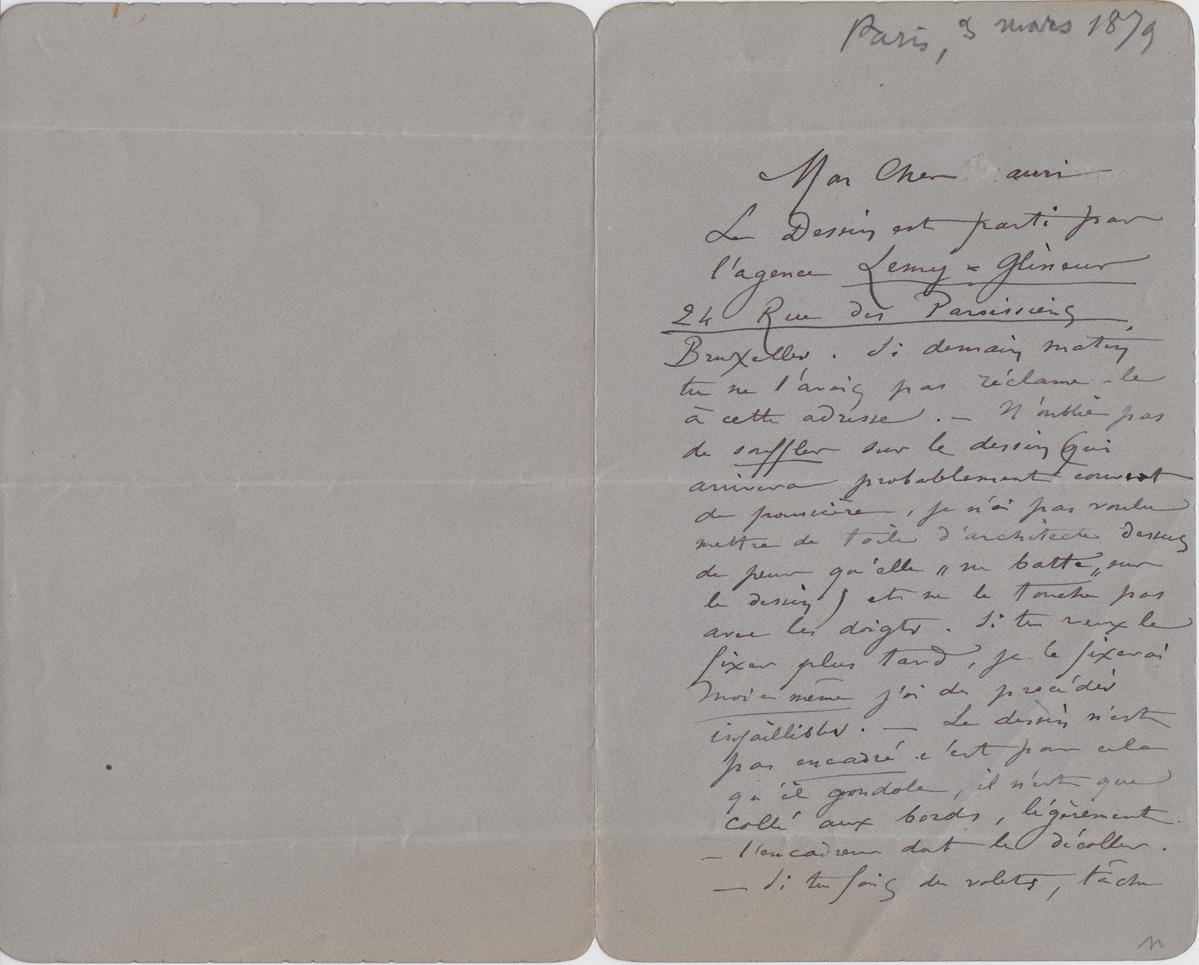 Paris, 3 mars 1879
Mon Cher ami
Le Dessin est parti par
l'agence Lemy = Glineur
24 Rue des Paroissiens
Bruxelles. Si demain matin
tu ne l'avais pas réclame-le
à cette adresse. — N'oublie pas
de souffler sur le dessin (qui
arrivera probablement couvert
de poussière, je n'ai pas voulu
mettre de toile d'architecte dessus
de peur qu'elle "ne batte" sur
le dessin) et ne le touche pas
avec les doigts. Si tu veux le
fixer plus tard, je le fixerai
moi-même j'ai des procédés
infaillibles. — Le dessin n'est
pas encadré c'est pour cela
qu'il gondole, il n'est que
collé aux bords, légèrement.
— l'encadreur doit le décoller.
— Si tu fais des volets, tâche